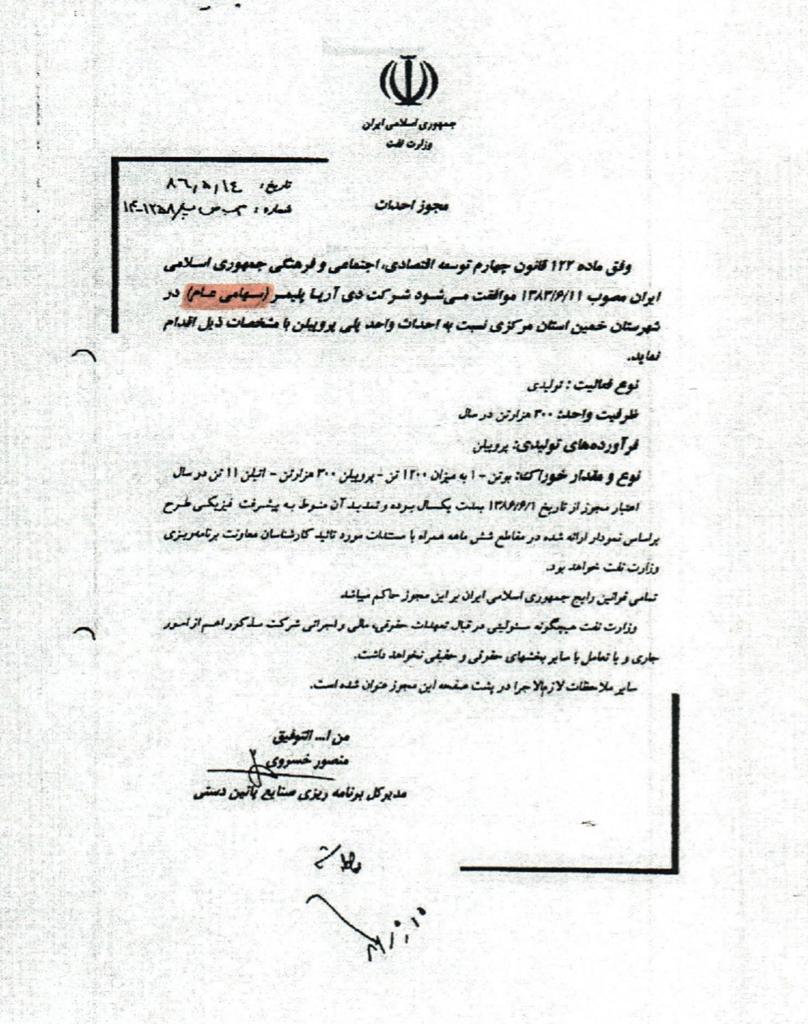 جمهوری اسلامی ایران
وزارت نفت
تاریخ: ۸۶,۵,۱٤
شماره:
مجوز احداث
وفق ماده ۱۲۲ قانون چهارم توسعه اقتصادی، اجتماعی و فرهنگی جمهوری اسلامی
ایران مصوب ۱۳۸۳/۶/۱۱ موافقت می‌شود شرکت دی آریا پلیمر (سهامی عام) در
شهرستان خمین استان مرکزی نسبت به احداث واحد پلی پروپیلن با مشخصات ذیل اقدام
نماید.
نوع فعالیت : تولیدی
ظرفیت واحد: ۳۰۰ هزارتن در سال
فرآورده‌های تولیدی: پروپیلن
نوع و مقدار خوراک: بوتن - ۱ به میزان ۱۲۰۰ تن - پروپیلن ۳۰۰ هزارتن - اتیلن ۱۱ تن در سال
اعتبار مجوز از تاریخ ۱۳۸۶/۶/۱ بمدت یکسال بوده و تمدید آن منوط به پیشرفت فیزیکی طرح
براساس نمودار ارائه شده در مقاطع شش ماهه همراه با مستندات مورد تائید کارشناسان معاونت برنامه‌ریزی
وزارت نفت خواهد بود.
تمامی قوانین رایج جمهوری اسلامی ایران بر این مجوز حاکم میباشد
وزارت نفت هیچگونه مسئولیتی در قبال تعهدات حقوقی، مالی و اجرائی شرکت مذکور اعم از امور
جاری و یا تعامل با سایر بخشهای حقوقی و حقیقی نخواهد داشت.
سایر ملاحظات لازم‌الاجرا در پشت صفحه این مجوز عنوان شده است.
من ا... التوفیق
منصور خسروی
مدیرکل برنامه ریزی صنایع پائین دستی